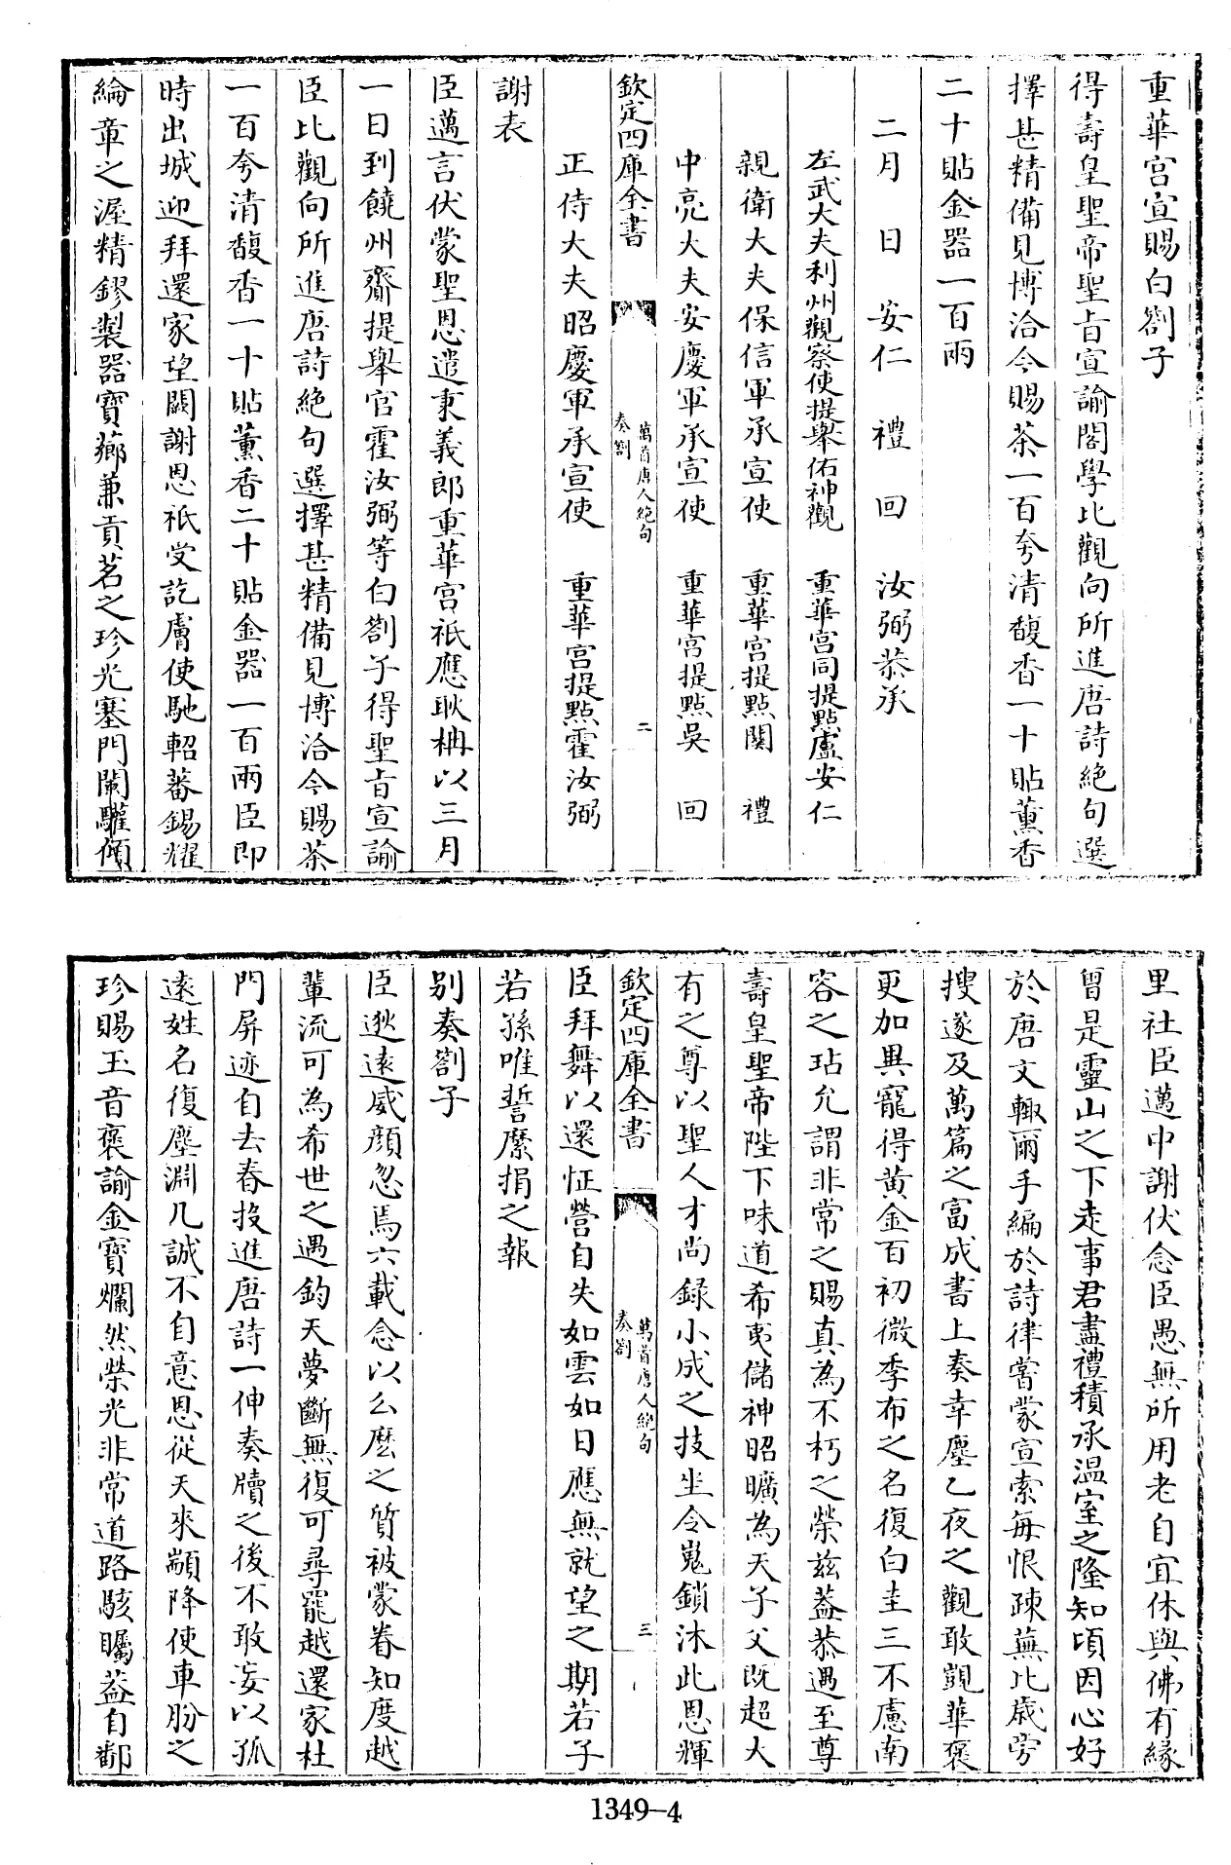 重華宮宣賜白劄子
得壽皇聖帝聖旨宣諭閣學比觀向所進唐詩絶句選
擇甚精備見博洽今賜茶一百夸清馥香一十貼薰香
二十貼金器一百兩
二月 日 安仁 禮 回 汝弼恭承
左武大夫利州觀察使提舉佑神觀 重華宮同提點盧安仁
親衛大夫保信軍承宣使 重華宮提點關 禮
中亮大夫安慶軍承宣使 重華宮提點吳 回
欽定四庫全書 萬首唐人絶句 奏劄 二
正侍大夫昭慶軍承宣使 重華宮提點霍汝弼
謝表
臣邁言伏蒙聖恩遣秉義郎重華宮祇應耿柟以三月
一日到饒州齎提舉官霍汝弼等白劄子得聖旨宣諭
臣比觀向所進唐詩絶句選擇甚精備見博洽今賜茶
一百夸清馥香一十貼薰香二十貼金器一百兩臣即
時出城迎拜還家望闕謝恩祇受訖膚使馳軺蕃錫耀
綸章之渥精鏐製器寶薌兼貢茗之珍光塞門闌驩傾
里社臣邁中謝伏念臣愚無所用老自宜休與佛有緣
曾是靈山之下走事君盡禮積承温室之隆知頃因心好
於唐文輙爾手編於詩律嘗蒙宣索每恨疎蕪比歲旁
搜遂及萬篇之富成書上奏幸塵乙夜之觀敢覬華褒
更加異寵得黄金百初微季布之名復白圭三不慮南
容之玷允謂非常之賜真為不朽之榮兹葢恭遇至尊
壽皇聖帝陛下味道希夷儲神昭曠為天子父既超大
有之尊以聖人才尚録小成之技坐令嵬鎖沐此恩輝
欽定四庫全書 萬首唐人絶句 奏劄 三
臣拜舞以還怔營自失如雲如日應無就望之期若子
若孫唯誓縻捐之報
别奏劄子
臣逖遠威顔忽焉六載念以么麽之質被蒙眷知度越
輩流可為希世之遇鈞天夢斷無復可尋寵越還家杜
門屏迹自去春投進唐詩一伸奏牘之後不敢妄以孤
遠姓名復塵淵几誠不自意恩從天來顓降使車肦之
珍賜玉音褒諭金寶爛然榮光非常道路駭矚葢自鄱
1349-4